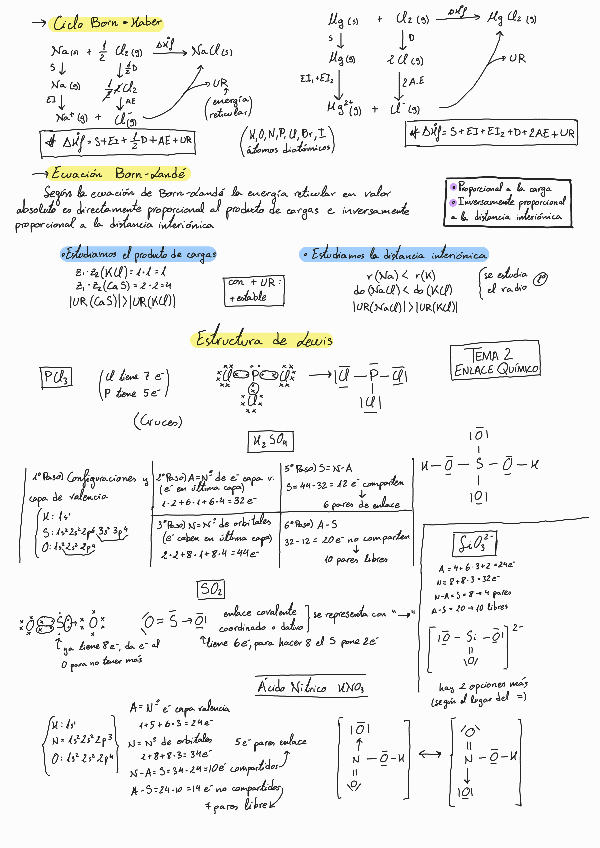 → Ciclo Born-Haber
Na(s) + 1/2 Cl₂(g) ΔH°f → NaCl(s)
S↓ ↓1/2D
Na(g) 1/2 Cl₂
EI↓ ↓AE
Na⁺(g) + Cl⁻(g)
UR
(energía reticular)
* ΔH°f = S+EI+1/2D+AE+UR
(H,O,N,F,Cl,Br,I
átomos diatómicos)
Mg(s) + Cl₂(g) ΔH°f → MgCl₂(g)
S↓ ↓D
Mg(g) 2Cl(g)
EI₁+EI₂↓ ↓2A.E
Mg²⁺(g) + Cl⁻(g)
UR
* ΔH°f = S+EI+EI₂+D+2AE+UR
→ Ecuación Born-Landé
Según la ecuación de Born-Landé la energía reticular en valor
absoluto es directamente proporcional al producto de cargas e inversamente
proporcional a la distancia interiónica
• Proporcional a la carga
• Inversamente proporcional
a la distancia interiónica
• Estudiamos el producto de cargas
Z₁·Z₂(KCl)=1·1=1
Z₁·Z₂(CaS)=2·2=4
|UR(CaS)|>|UR(KCl)|
con + UR:
+ estable
• Estudiamos la distancia interiónica
r(Na) < r(K)
do(NaCl) < do(KCl)
|UR(NaCl)|>|UR(KCl)|
(se estudia
el radio
Estructura de Lewis
TEMA 2
ENLACE QUÍMICO
PCl₃
(Cl tiene 7 e⁻
P tiene 5e⁻)
(Cruces)
Cl P Cl
Cl
→ |Cl — P — Cl|
|Cl|
H₂SO₄
1º Paso) Configuraciones y
capa de valencia
H: 1s¹
S: 1s²2s²2p⁶3s²3p⁴
O: 1s²2s²2p⁴
2º Paso) A=Nº de e⁻ capa v.
(e⁻ en última capa)
1·2+6·1+6·4=32e⁻
3º Paso) N=Nº de orbitales
(e⁻ caben en última capa)
2·2+8·1+8·4=44e⁻
5º Paso) S=N-A
S=44-32=12 e⁻ comparten
↓
6 pares de enlace
6º Paso) A-S
32-12=20e⁻ no comparten
↓
10 pares libres
|O|
H — O — S — O — H
|O|
SiO₃²⁻
A=4+6·3+2=24e⁻
N=8+8·3=32e⁻
N-A=S=8→4 pares
A-S=20→10 libres
[|O — Si — O|]²⁻
||
|O|
hay 2 opciones más
(según el lugar del =)
SO₂
O S O
O = S → O|
enlace covalente
coordinado o dativo
se representa con "→"
↑ya tiene 8e⁻, da e⁻ al
O para no tener más
↑tiene 6e⁻, para hacer 8 el S pone 2e⁻
Ácido Nítrico HNO₃
H: 1s¹
N=1s²2s²2p³
O: 1s²2s²2p⁴
A=Nº e⁻ capa valencia
1+5+6·3=24e⁻
N=Nº de orbitales
2+8+8·3=34e⁻
N-A=S=34-24=10e⁻ compartidos
5e⁻ pares enlace
A-S=24-10=14 e⁻ no compartidos
7 pares libres
|O|
↑
N — O — H
||
O
↔
O
||
N — O — H
↓
|O|